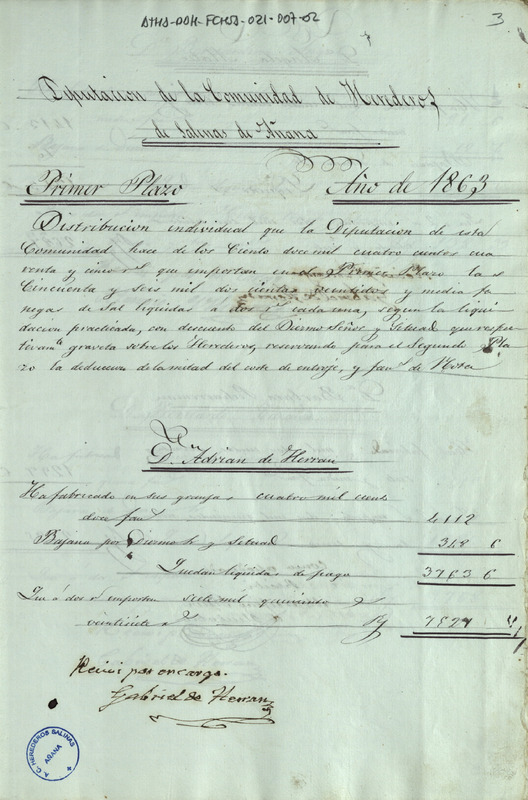 ATHA-DDH-FCHSA-021-007-02
3
Diputacion de la Comunidad de Herederos
de Salinas de Añana
Primer Plazo Año de 1863
Distribucion individual que la Diputacion de esta
Comunidad hace de los Ciento doce mil cuatro cientos cua
renta y cinco rs que importan en el Primer Plazo las
Cincuenta y seis mil dos cientas veintidos y media fa
negas de sal liquidas a dos rs cada una, segun la liqui
dacion practicada, con descuento del Diezmo Señor y Setual que respec
tivamte gravita sobre los Herederos, reservando para el Segundo Pla
zo la deduccion de la mitad del coste de entroje, y fans de
Dn
D. Adrian de Herran
Ha fabricado en sus granjas cuatro mil ciento
doce fans 4112
Bajana por Diezmo y Setual 348 6
Quedan liquidas de pago 3763 6
Que á dos rs importan siete mil quinientos
veintisiete rs 7527 "
Recivi por encargo.
Gabriel de Herran
A. C. HEREDEROS SALINAS
AÑANA